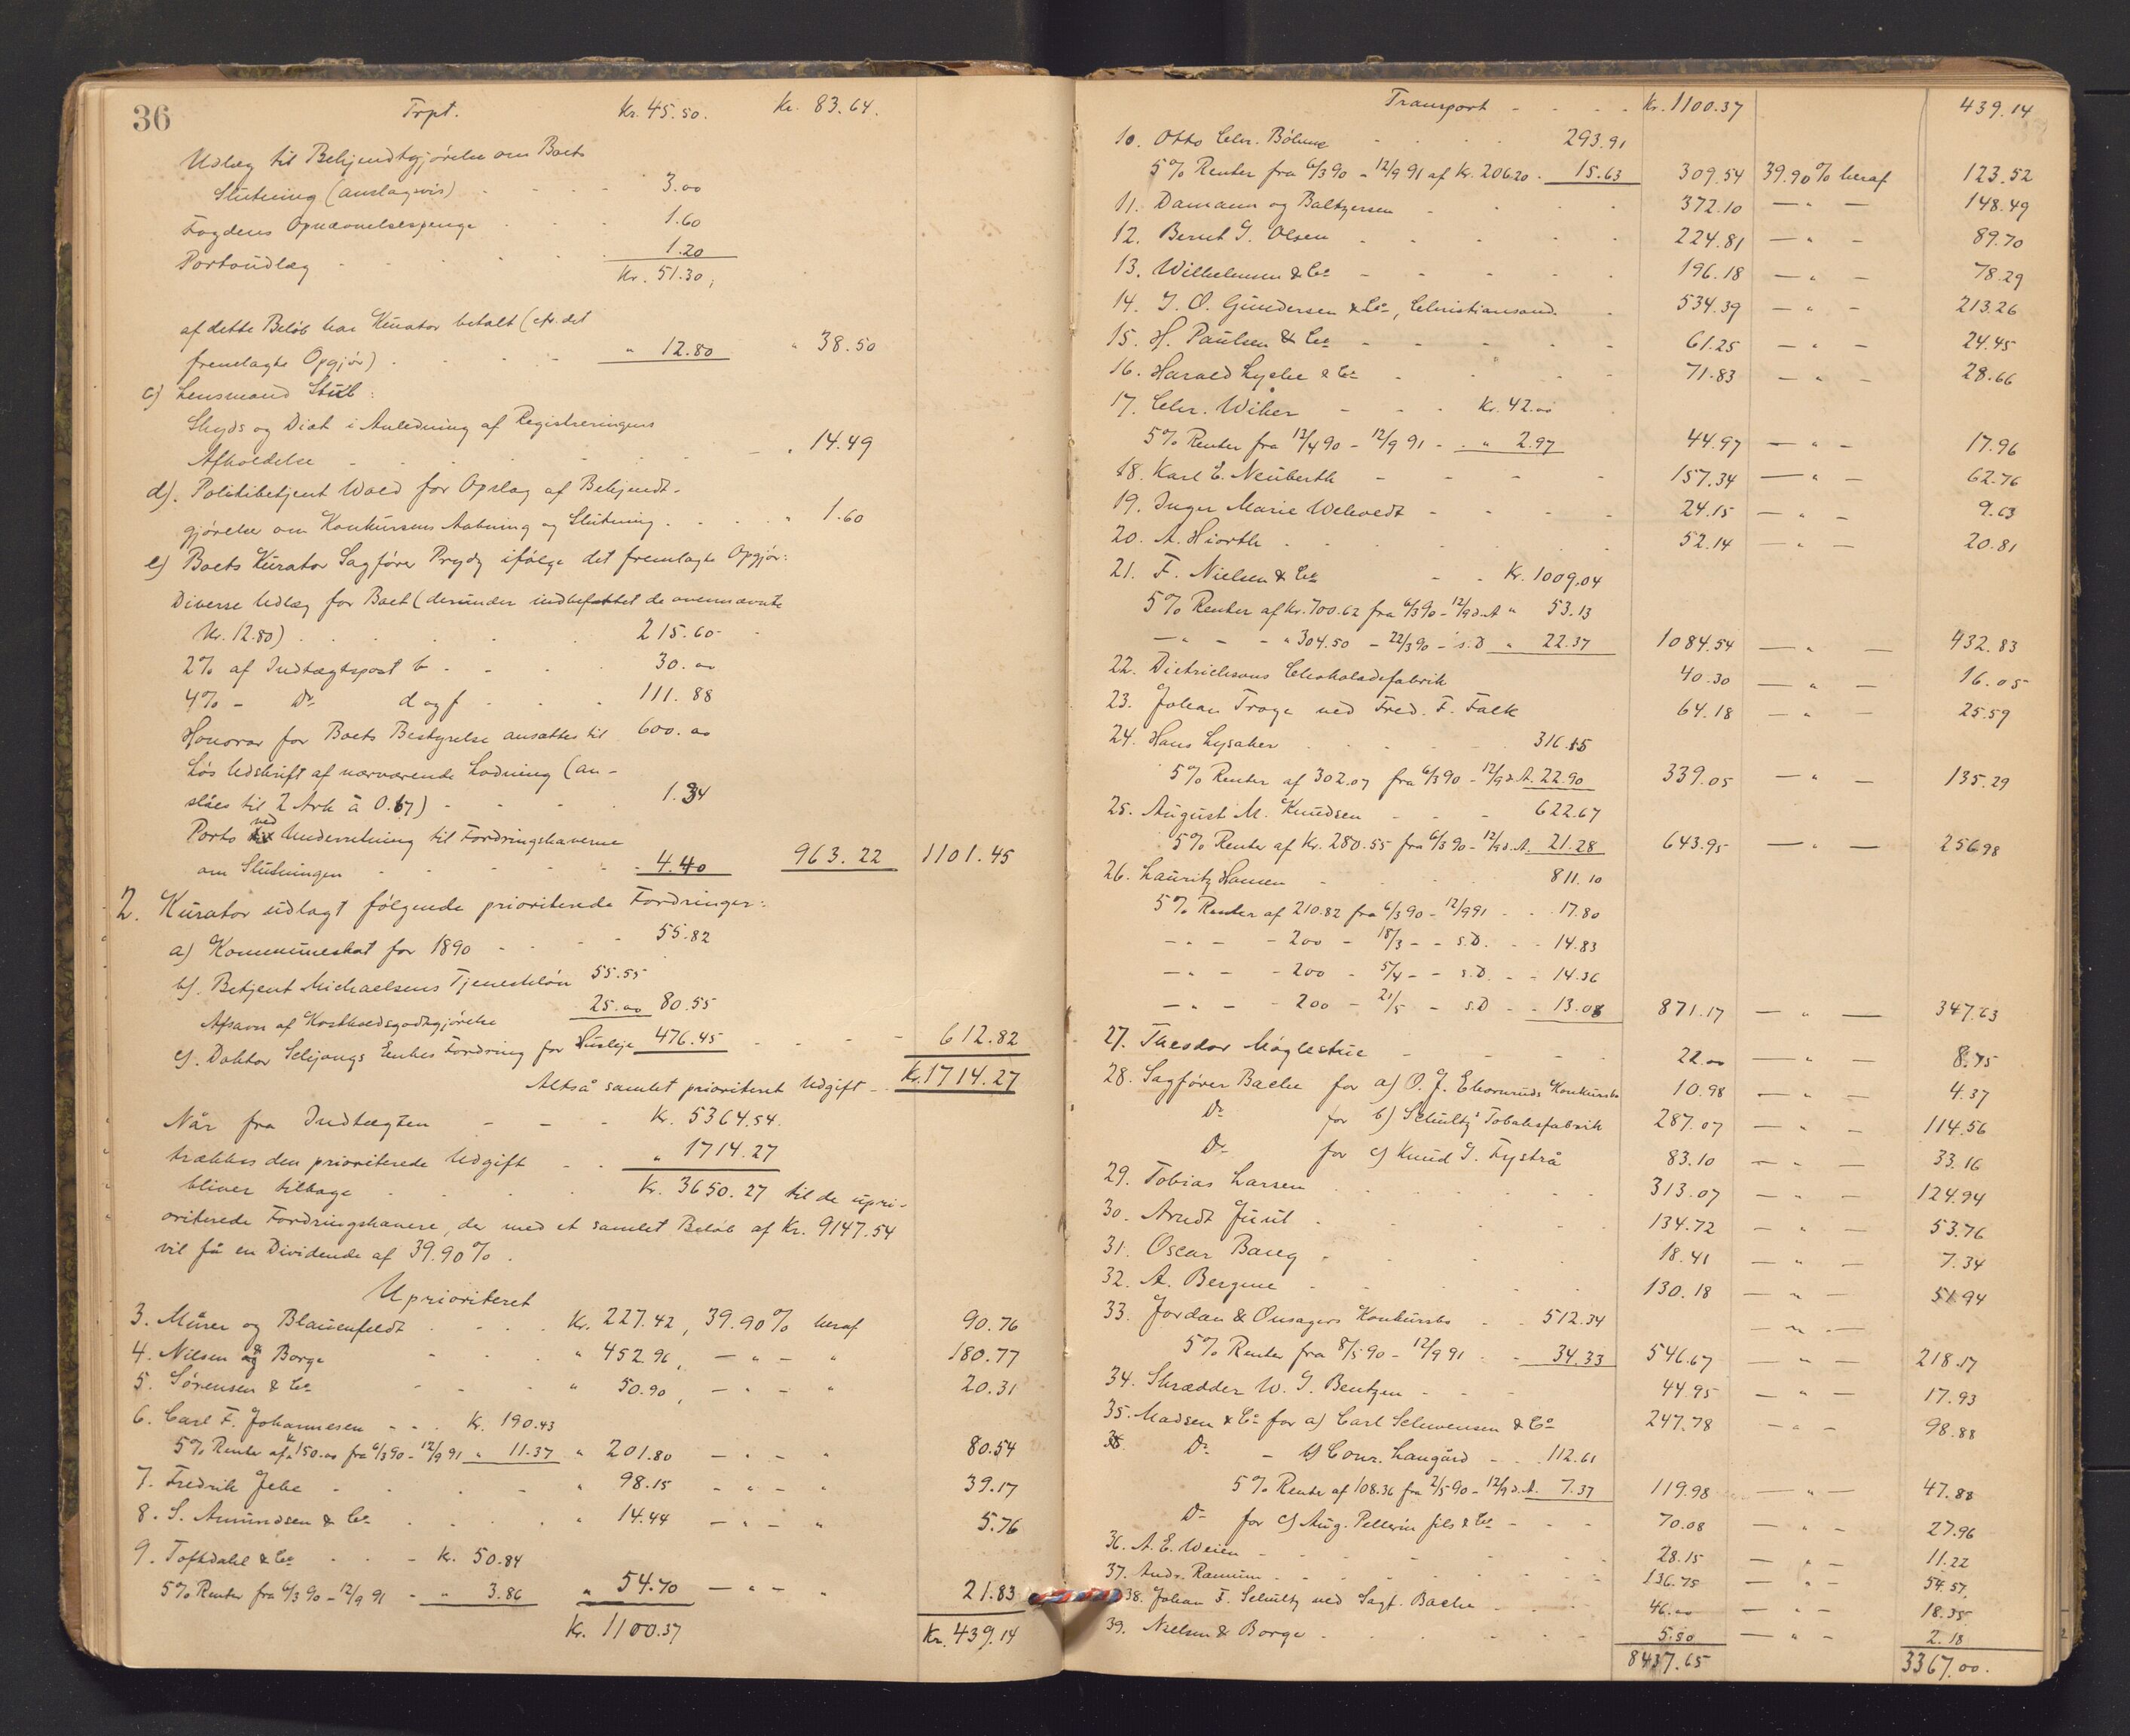 36
Trpt. Kr. 45.50. Kr. 83.64.
Udlæg til Bekjendtgjørelse om Boets
Slutning (anslagsvis) 3.00
Fogdens Opnævnelsespenge 1.60
Portoudlæg 1.20
Kr. 51.30,
af dette Beløb har Kurator betalt (cfr. det
fremlagte Opgjør) " 12.80 " 38.50
c) Lensmand Stub:
Skyds og Diæt i Anledning af Registreringens
Afholdelse " 14.49
d). Politibetjent Wold for Opslag af Bekjendt-
gjørelse om Konkursens Aabning og Slutning " 1.60
e) Boets Kurator Sagfører Prydz ifølge det fremlagte Opgjør:
Diverse Udlæg for Boet (derunder indbefattet de ovennævnte
Kr. 12.80) 215.60
2% af Indtægtspost b 30.00
4% - Do d og f 111.88
Honorar for Boets Bestyrelse ansættes til 600.00
Løs Udskrift af nærværende Lodning (an-
slåes til 2 Ark à 0.67) 1.34
Porto ved Underretning til Fordringshaverne
om Slutningen 4.40 963.22 1101.45
2. Kurator udlagt følgende prioriterede Fordringer:
a) Kommuneskat for 1890 55.82
b). Betjent Michaelsens Tjenesteløn 55.55
Afsavn af Kostholdsgodtgjørelse 25.00 80.55
c). Doktor Schjøngs Enkes Fordring for Husleje 476.45 612.82
Altså samlet prioriteret Udgift Kr. 1714.27
Når fra Indtægten Kr. 5364.54.
trækkes den prioriterede Udgift " 1714.27
bliver tilbage Kr. 3650.27 til de upri-
oriterede Fordringshavere, der med et samlet Beløb af Kr. 9147.54
vil få en Dividende af 39.90%.
Uprioriteret
3. Mürer og Blauenfeldt Kr. 227.42, 39.90% heraf 90.76
4. Nilsen & Borge " 452.96, — " — " 180.77
5. Sørensen & Co " 50.90, — " — " 20.31
6. Carl F. Johannesen Kr. 190.43
5% Renter af Kr 150.00 fra 6/3 90 - 12/9 91 " 11.37 " 201.80 — " — " 80.54
7. Fredrik Jebe " 98.15 — " — " 39.17
8. S. Amundsen & Co " 14.44 — " — " 5.76
9. Toftdahl & Co Kr. 50.84
5% Renter fra 6/3 90 - 12/9 91 " 3.86 " 54.70 — " — " 21.83
Kr. 1100.37 Kr. 439.14
Transport Kr. 1100.37 439.14
10. Otto Chr. Bølum 293.91
5% Renter fra 6/3 90 - 12/9 91 af Kr. 206.20 15.63 309.54 39.90% heraf 123.52
11. Damann og Baltzersen 372.10 — " — 148.49
12. Bernt J. Olsen 224.81 — " — 89.70
13. Wilhelmsen & Co 196.18 — " — 78.29
14. J. O. Gundersen & Co, Christianssand. 534.39 — " — 213.26
15. H. Paulsen & Co 61.25 — " — 24.45
16. Harald Lyche & Co 71.83 — " — 28.66
17. Chr. Wiker Kr. 42.00
5% Renter fra 12/4 90 - 12/9 91 " 2.97 44.97 — " — 17.96
18. Karl E. Neuberth 157.34 — " — 62.76
19. Inger Marie Wehvedt 24.15 — " — 9.63
20. A. Hiorth 52.14 — " — 20.81
21. F. Nielsen & Co Kr. 1009.04
5% Renter af Kr. 700.62 fra 6/3 90 - 12/9 d.A " 53.13
— " — " 304.50 - 22/3 90 - s.D " 22.37 1084.54 — " — 432.83
22. Dietrichsons Chokoladefabrik 40.30 — " — 16.05
23. Johan Troye ved Fred. F. Falk 64.18 — " — 25.59
24. Hans Lysaker 316.15
5% Renter af 302.07 fra 6/3 90 - 12/9 d.A. 22.90 339.05 — " — 135.29
25. August M. Knudsen 622.67
5% Renter af Kr. 280.55 fra 6/3 90 - 12/9 d.A. 21.28 643.95 — " — 256.98
26. Lauritz Hansen 811.10
5% Renter af 210.82 fra 6/3 90 - 12/9 91 17.80
— " — - 200 - 18/3 - - s.D. 14.83
— " — - 200 - 5/4 - - s.D. 14.36
— " — - 200 - 21/5 - s.D 13.08 871.17 — " — 347.63
27. Theodor Møglestue 22.00 — " — 8.75
28. Sagfører Bache for a) O. J. Ekornruds Konkursbo 10.98 — " — 4.37
Do for b) Schultz' Tobaksfabrik 287.07 — " — 114.56
Do for c) Knud J. Fystrå 83.10 — " — 33.16
29. Tobias Larsen 313.07 — " — 124.94
30. Arndt Juul 134.72 — " — 53.76
31. Oscar Baug 18.41 — " — 7.34
32. A. Bergene 130.18 — " — 51.94
33. Jordan & Onsagers Konkursbo 512.34 — " —
5% Renter fra 8/5 90 - 12/9 91 34.33 546.67 — " — 218.17
34. Skrædder W. J. Bentzen 44.95 — " — 17.93
35. Madsen & Co for a) Carl Schwensen & Co 247.78 — " — 98.88
Do - b) Conr. Langård 112.61
5% Renter af 108.36 fra 2/5 90 - 12/9 d.A. 7.37 119.98 — " — 47.88
Do for c) Aug. Pellerin fils & Co 70.08 — " — 27.96
36. A. E. Weien 28.15 — " — 11.22
37. Andr. Ramum 136.75 — " — 54.57.
38. Johan F. Schultz ved Sagf. Bache 46.00 — " — 18.35
39. Nielsen & Borge 5.50 — " — 2.18
8437.65 3367.00.